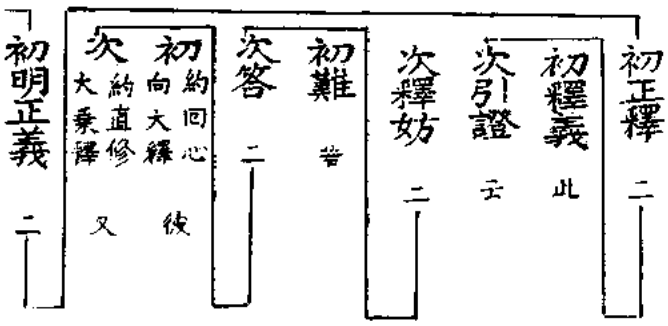 初正釋 二
初釋義 此
次引證
次釋妨 二
初難 若
次答 二
初 約回心向大釋 彼
次 約直修大乘釋 又
初明正義 二